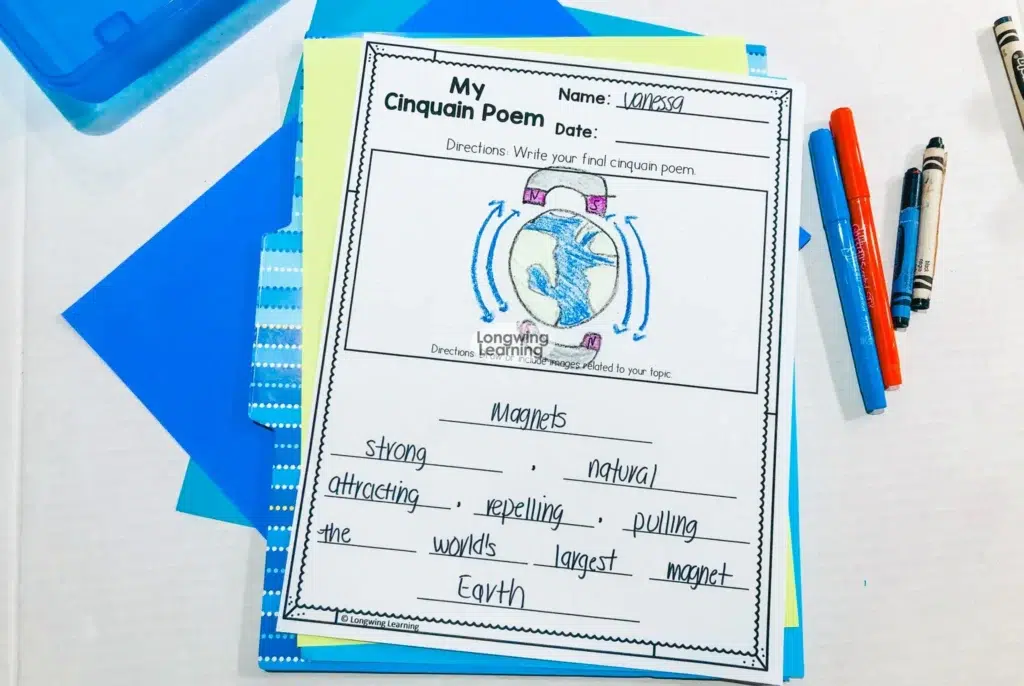 My
Cinquain Poem
Name: Vanessa
Date:
Directions: Write your final cinquain poem.
N S
N
Longwing
Learning
Directions: or include images related to your topic
Magnets
strong , natural
attracting , repelling , pulling
the world's largest magnet
Earth
© Longwing Learning